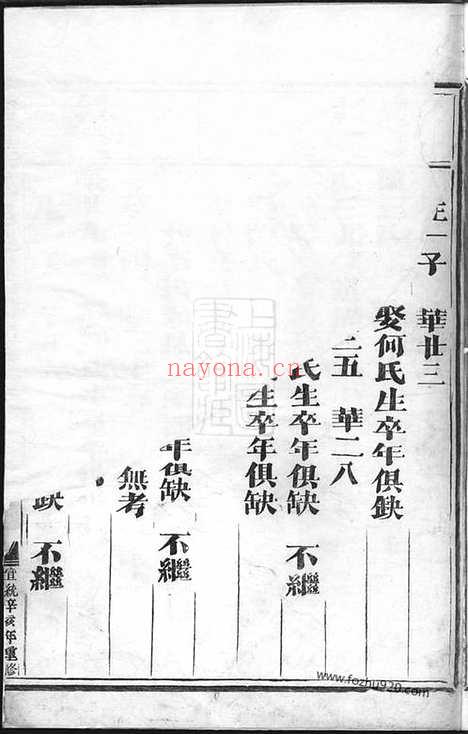 一子 華廿三
娶何氏生卒年俱缺
五 華二八
氏生卒年俱缺 不繼
生卒年俱缺
年俱缺 不繼
無考
缺 不繼
宣統辛亥年重修
nayona.cn
www.fozhu920.com